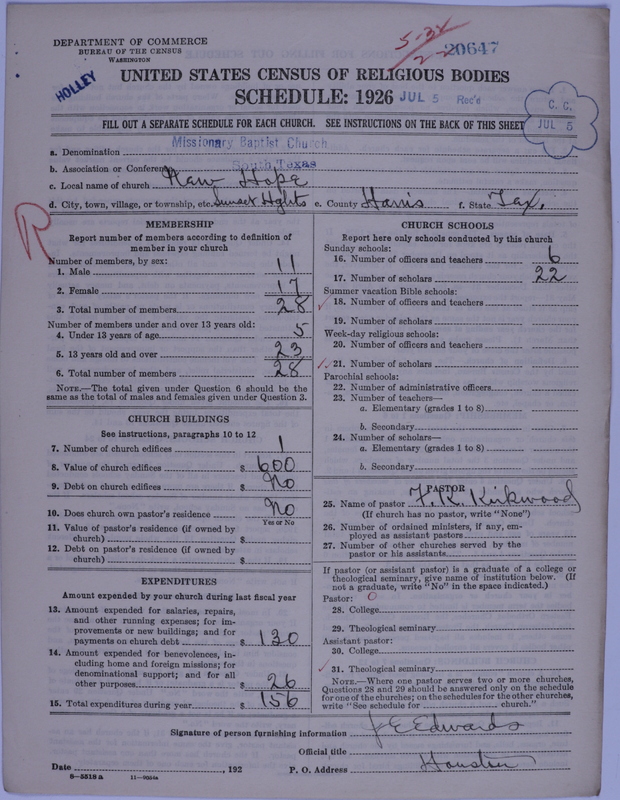 DEPARTMENT OF COMMERCE
BUREAU OF THE CENSUS
WASHINGTON
HOLLEY
5-34
20647
UNITED STATES CENSUS OF RELIGIOUS BODIES
SCHEDULE: 1926
JUL 5 Rec'd
C. C.
JUL 5
FILL OUT A SEPARATE SCHEDULE FOR EACH CHURCH. SEE INSTRUCTIONS ON THE BACK OF THIS SHEET
a. Denomination Missionary Baptist Church
b. Association or Conference South Texas
c. Local name of church Naw Hope
d. City, town, village, or township, etc. Sunset Hghts e. County Harris f. State Tex.
R
MEMBERSHIP
Report number of members according to definition of member in your church
Number of members, by sex:
1. Male 11
2. Female 17
3. Total number of members 28
Number of members under and over 13 years old:
4. Under 13 years of age 5
5. 13 years old and over 23
6. Total number of members 28
NOTE.—The total given under Question 6 should be the
same as the total of males and females given under Question 3.
CHURCH BUILDINGS
See instructions, paragraphs 10 to 12
7. Number of church edifices 1
8. Value of church edifices $ 600
9. Debt on church edifices $ No
10. Does church own pastor's residence No
Yes or No
11. Value of pastor's residence (if owned by
church) $
12. Debt on pastor's residence (if owned by
church) $
EXPENDITURES
Amount expended by your church during last fiscal year
13. Amount expended for salaries, repairs,
and other running expenses; for im-
provements or new buildings; and for
payments on church debt $ 130
14. Amount expended for benevolences, in-
cluding home and foreign missions; for
denominational support; and for all
other purposes $ 26
15. Total expenditures during year $ 156
CHURCH SCHOOLS
Report here only schools conducted by this church
Sunday schools:
16. Number of officers and teachers 6
17. Number of scholars 22
Summer vacation Bible schools:
18. Number of officers and teachers
19. Number of scholars
Week-day religious schools:
20. Number of officers and teachers
21. Number of scholars
Parochial schools:
22. Number of administrative officers
23. Number of teachers—
a. Elementary (grades 1 to 8)
b. Secondary
24. Number of scholars—
a. Elementary (grades 1 to 8)
b. Secondary
PASTOR
25. Name of pastor F. K. Kirkwood
(If church has no pastor, write "None")
26. Number of ordained ministers, if any, em-
ployed as assistant pastors
27. Number of other churches served by the
pastor or his assistants
If pastor (or assistant pastor) is a graduate of a college or
theological seminary, give name of institution below. (If
not a graduate, write "No" in the space indicated.)
Pastor: O
28. College
29. Theological seminary
Assistant pastor:
30. College
31. Theological seminary
NOTE.—Where one pastor serves two or more churches,
Questions 28 and 29 should be answered only on the schedule
for one of the churches; on the schedules for the other churches,
write "See schedule for church."
Signature of person furnishing information J E Edwards
Official title
Date , 192 P. O. Address Houston
6-5518 a 11-9054a